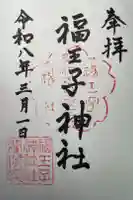 奉拝
福王子神社
令和八年三月一日